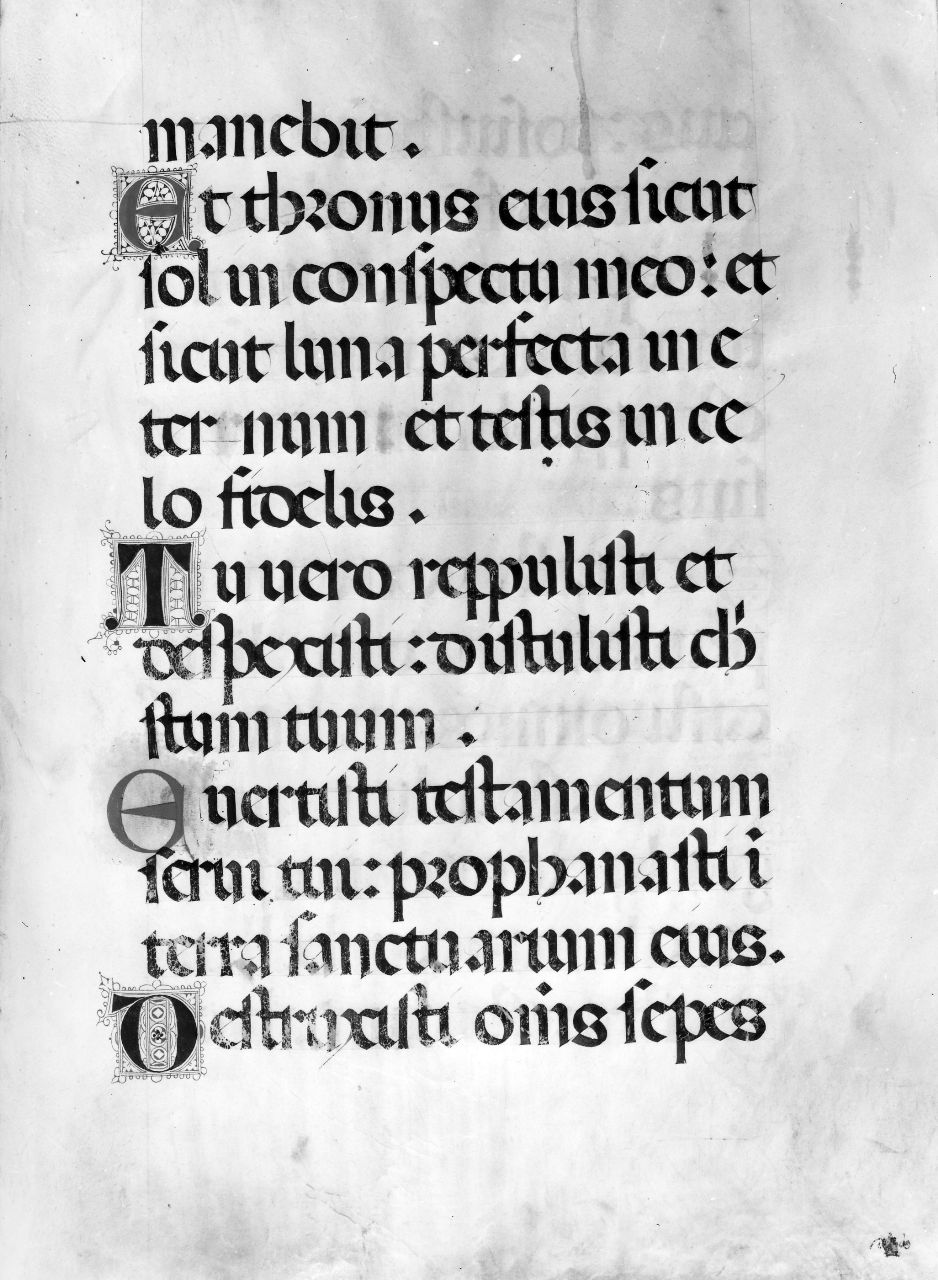 manebit.
Et thronus eius sicut
sol in conspectu meo: et
sicut luna perfecta in e
ternum et testis in ce
lo fidelis.
Tu uero reppulisti et
despexisti: distulisti ch̄ri
stum tuum.
Euertisti testamentum
serui tui: prophanasti i
terra sanctuarium eius.
Destruxisti om̄is sepes